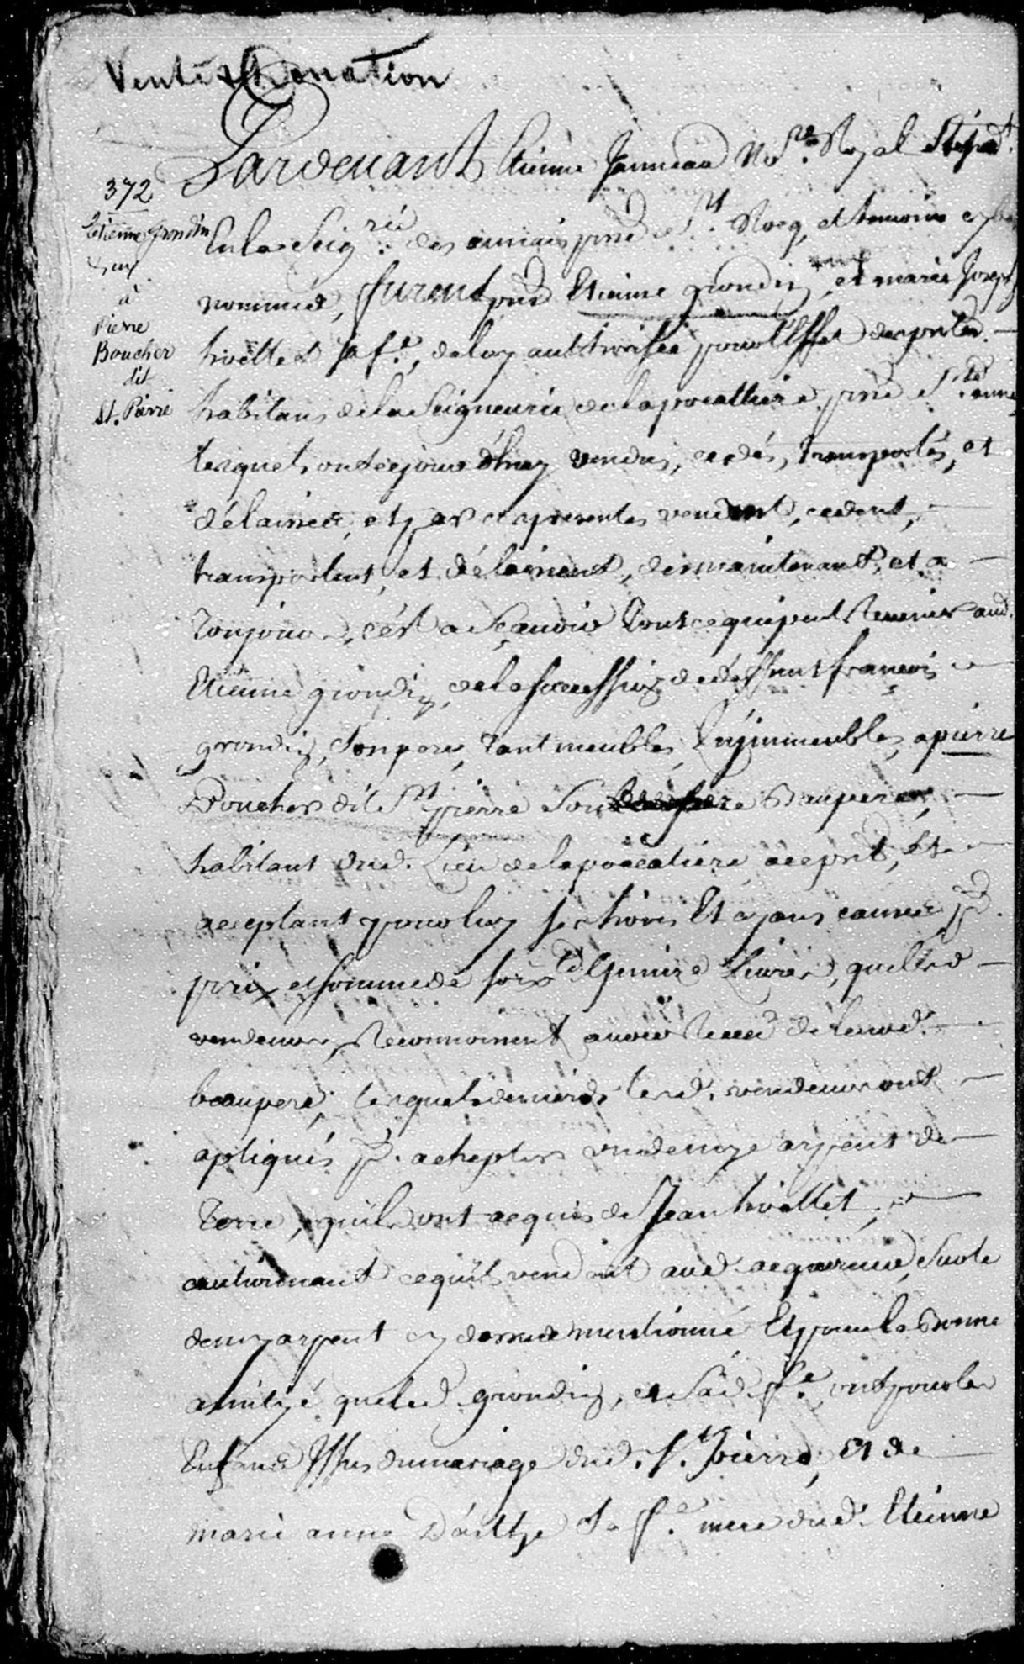 Vente & Donation
372
Etienne Grondin
&ux
à
Pierre
Boucher
dit
St. Pierre
Pardevant Etienne Janneau No.re Royal
En la Seig.rie des aunais prée St Rocq, et temoins cy bas
nommés, furent pnts Etienne grondin, et marie Joseph
hoëllet sa fe, de luy authorisée pour l'effet des pntes. —
habitans de la Seigneurie de la pocattiere prée Ste anne
lesquels ont cejourd'huy vendus, cedés, transportés, et
délaissés, et par ces presentes vendent, cedent, —
transportent, et délaissent, des maintenant, et a —
Toujours, c'est a Sçauoir tout ce qui peut Reuenir aud.
Etienne grondin, de la succession de deffunt francois —
grondin, Son pere, tant meubles, qu'immeubles, a pierre
Boucher dit St pierre Son Beaupere, —
habitant dud. Lieu de la pocatiere aceptt, Et —
aceptant pour luy ses hoirs Et ayans cause pr.
prix et somme de soixte quinze Liures, que lesd —
vendeurs, Reconnoissent auoir Receu de leurd. —
beaupere, lesquels deniers lesd. vendeurs ont —
apliqués pr. achepter un demy arpent de —
Terre, qu'ils ont acquis de Jean hoëllet, —
cautionant ce qu'ils vendent aud. acquereur, sur le
demy arpent cy dessus mentionné Et pour la Bonne
amitié que led. grondin, et sad. fe. ont pour les
Enfans Issus du mariage dud. St. pierre, et de —
marie anne Sa fe. mere dud. Etienne